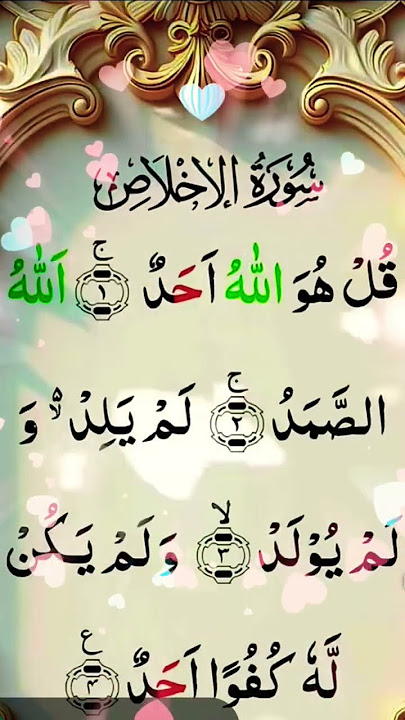 سُوْرَةُ الْاِخْلَاصِ
قُلْ هُوَ اللّٰهُ اَحَدٌ ۚ﴿۱﴾ اَللّٰهُ
الصَّمَدُ ۚ﴿۲﴾ لَمْ یَلِدْ ۙ۬ وَ
لَمْ یُوْلَدْ ۙ﴿۳﴾ وَلَمْ یَکُنْ
لَّهٗ کُفُوًا اَحَدٌ ﴿۴﴾ ع